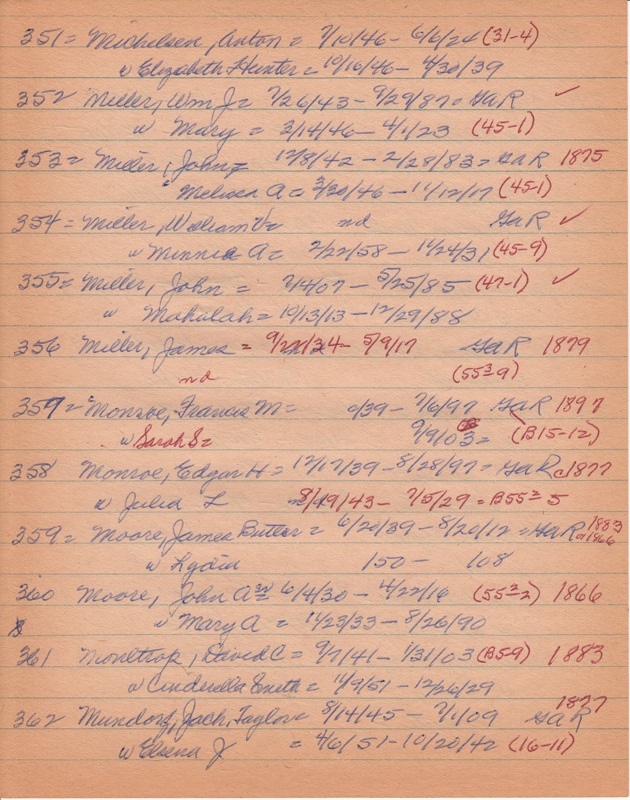 351 = Michelsen, Anton = 7/10/46 - 6/6/24 (31-4)
w Elizabeth Hunter = 10/16/46 - 4/30/39
352 Miller, Wm J = 7/26/43 - 9/29/87 = GaR ✓
w Mary = 2/14/46 - 4/1/23 (45-1)
353 = Miller, John = 12/8/42 - 2/28/83 = GaR 1875
" Melissa A = 3/20/46 - 11/12/17 (45-1)
354 = Miller, William V = nd GaR ✓
w Minnie A = 2/22/58 - 11/24/31 (45-9)
355 = Miller, John = 2/4/07 - 5/25/85 (47-1) ✓
w Mahalah = 10/13/13 - 12/29/88
356 Miller, James = 34 - 5/9/17 GaR 1879
nd (55=9)
357 = Monroe, Francis M = 0/39 - 7/6/97 GaR 1897
w Sarah S = 9/9/03 = (B15-12)
358 Monroe, Edgar H = 12/17/39 - 8/28/97 = GaR c1877
w Julia L 8/19/43 - 7/5/29 = B55=5
359 = Moore, James Butler = 6/20/39 - 8/20/12 = GaR 1883 or 1866
w Lydia 150 - 108
360 Moore, John A = 6/4/30 - 4/22/16 (55=2) 1866
w Mary A = 11/23/33 - 8/26/90
361 David C = 9/7/41 - 1/31/03 (B5-9) 1883
w Cinderella Smith = 11/9/51 - 12/26/29
362 Mundorf, Jack, Taylor = 8/14/45 - 7/1/09 GaR 1877
w J = 4/6/51 - 10/20/42 (16-11)